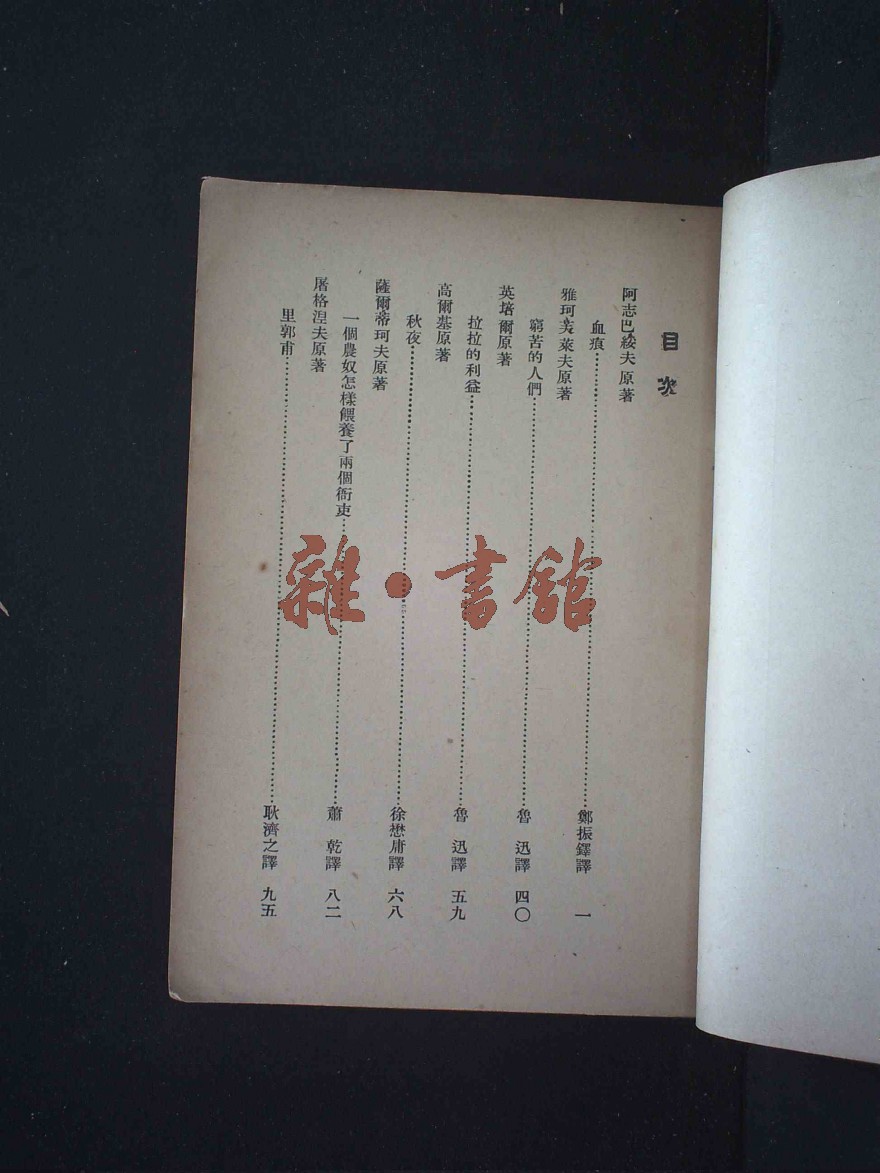 目次
阿志巴綏夫原著
血痕……鄭振鐸譯 一
雅珂芙萊夫原著
窮苦的人們……魯迅譯 四〇
英培爾原著
拉拉的利益……魯迅譯 五九
高爾基原著
秋夜……徐懋庸譯 六八
薩爾蒂珂夫原著
一個農奴怎樣餵養了兩個衙吏……蕭乾譯 八二
屠格涅夫原著
里郭甫……耿濟之譯 九五
雜·書館